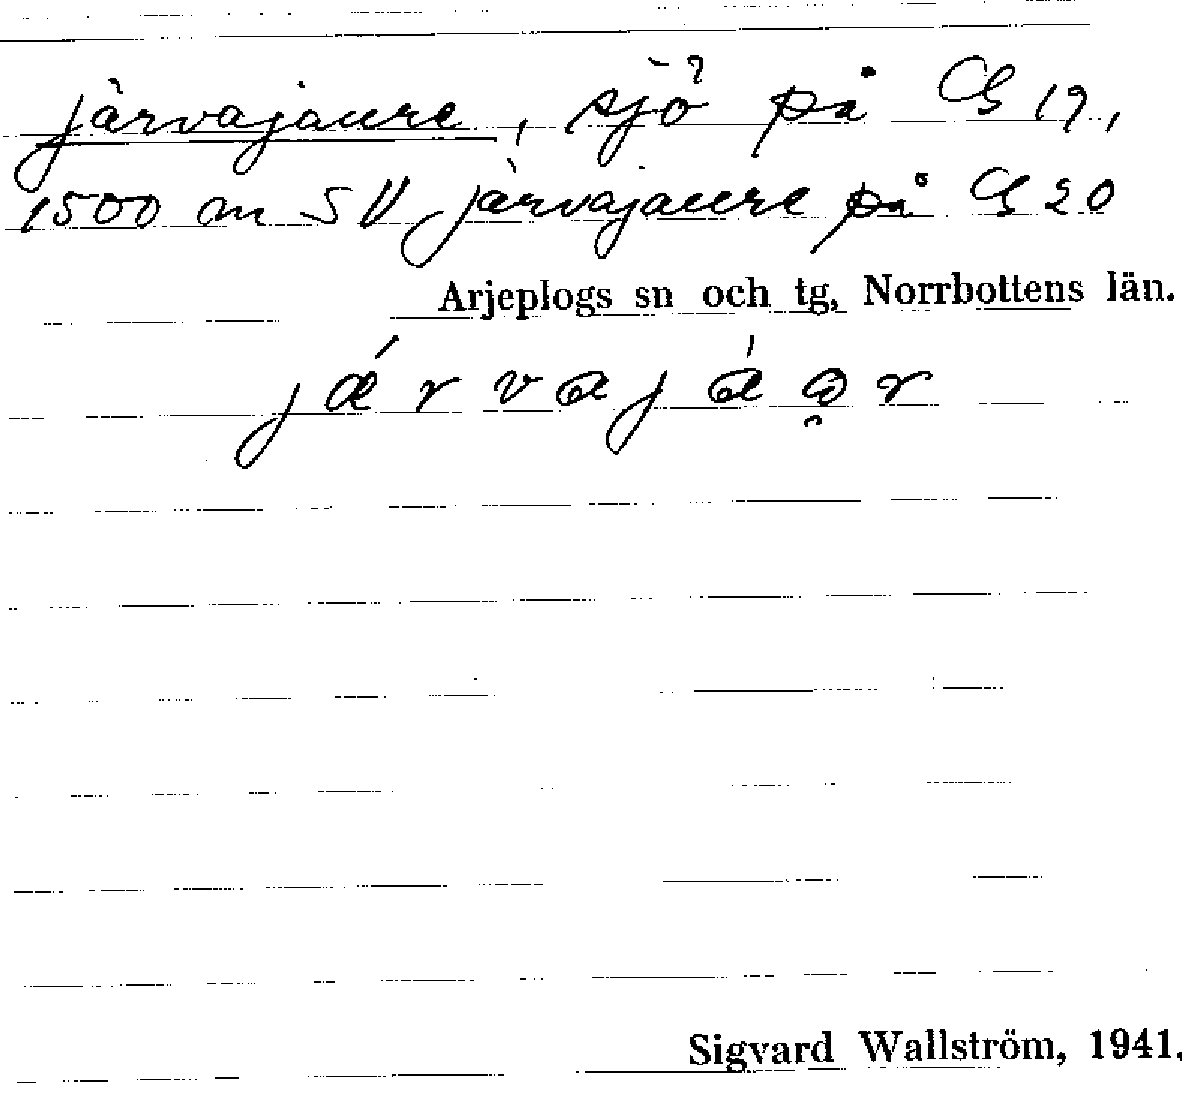 järvajaure, sjö på G 19,
1500 m SV järvajaure på G 20
Arjeplogs sn och tg, Norrbottens län.
Sigvard Wallström, 1941.